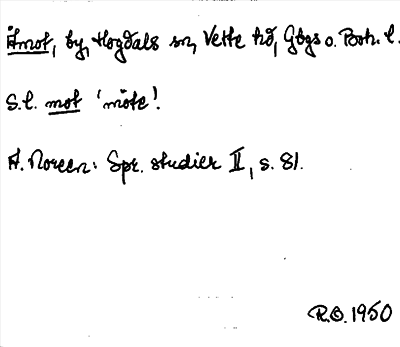 Åmot, by, Hogdals sn, Vette hd, Gbgs o. Boh. l.
S.l. mot 'möte'.
A. Noreen: Spr. studier II, s. 81.
R.O. 1950